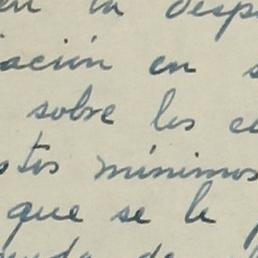 en la desp
iación en s
sobre los co
stos mínimos
que se le
de